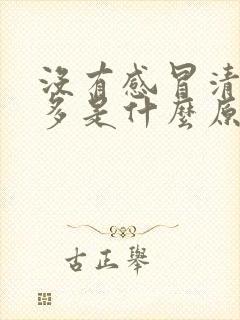 沒有感冒清
多是什麼原
古正舉